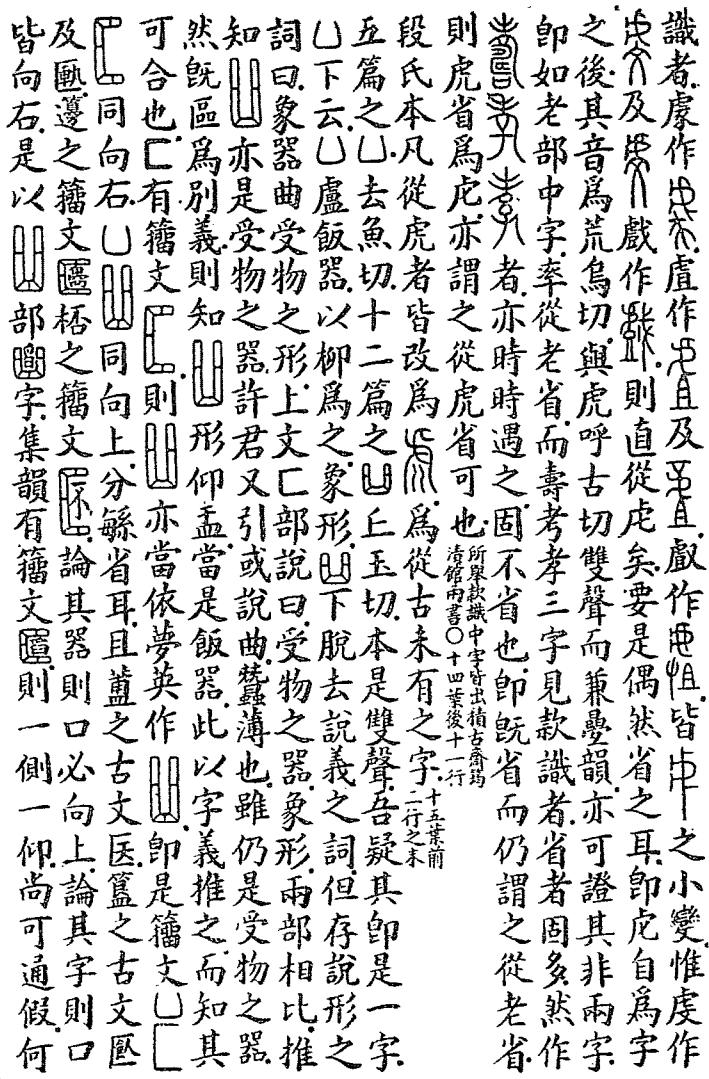 識者作虘作及戲作皆之小變惟虔作
及戲作則直從虍矣要是偶然省之耳卽虍自爲字
之後其音爲荒烏切與虎呼古切雙聲而兼疊韻亦可證其非兩字
卽如老部中字率從老省而壽考孝三字見款識者省者固多然作
者亦時時遇之固不省也卽旣省而仍謂之從老省
則虎省爲虍亦謂之從虎省可也所舉款識中字皆出積古齋筠
清館兩書〇十四葉後十一行
段氏本凡從虎者皆改爲爲從古未有之字十五葉前
二行之末
五篇之凵去魚切十二篇之丘玉切本是雙聲吾疑其卽是一字
凵下云凵盧飯器以柳爲之象形下脫去說義之詞但存說形之
詞曰象器曲受物之形上文匚部說曰受物之器象形兩部相比推
知亦是受物之器許君又引或說曲蠶薄也雖仍是受物之器
然旣區爲別義則知形仰盂當是飯器此以字義推之而知其
可合也匚有籀文則亦當依夢英作卽是籀文凵匚
同向右凵同向上分緐省耳且之古文簠之古文
及邊之籀文桮之籀文論其器則口必向上論其字則口
皆向右是以部字集韻有籀文則一側一仰尚可通假何